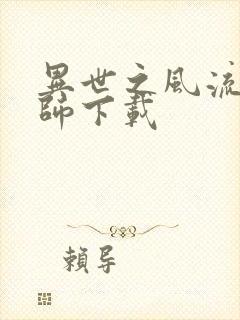 異世之風流
師下載
賴导